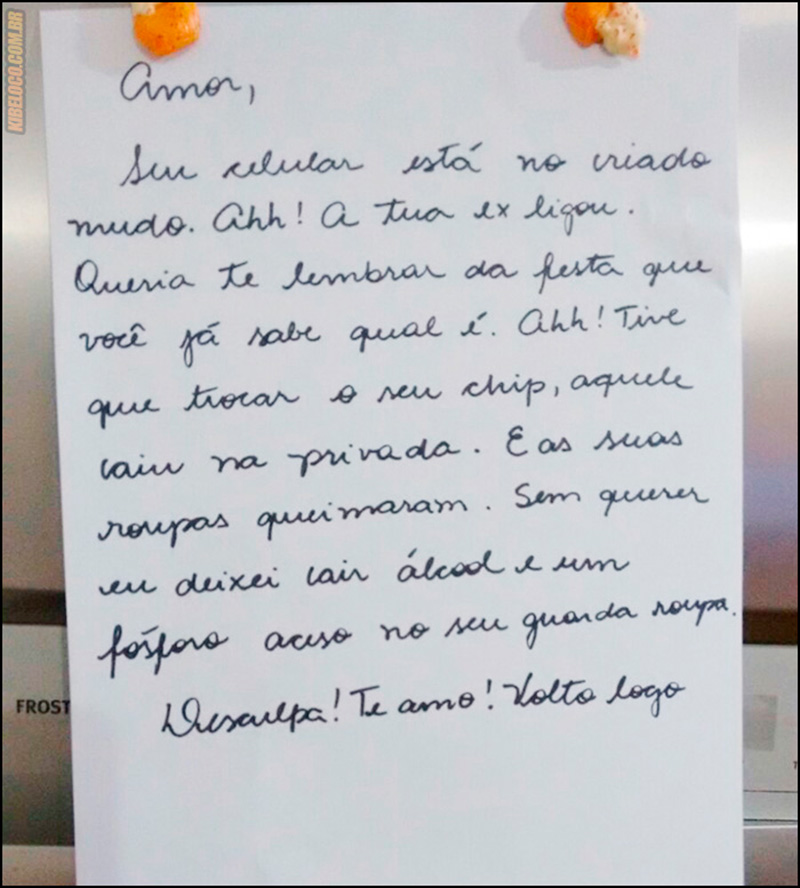 KIBELOCO.COM.BR
Amor,
Seu celular está no criado
mudo. Ahh! A tua ex ligou.
Queria te lembrar da festa que
você já sabe qual é. Ahh! Tive
que trocar o seu chip, aquele
caiu na privada. E as suas
roupas queimaram. Sem querer
eu deixei cair álcool e um
fósforo aceso no seu guarda roupa.
Desculpa! Te amo! Volto logo
FROST